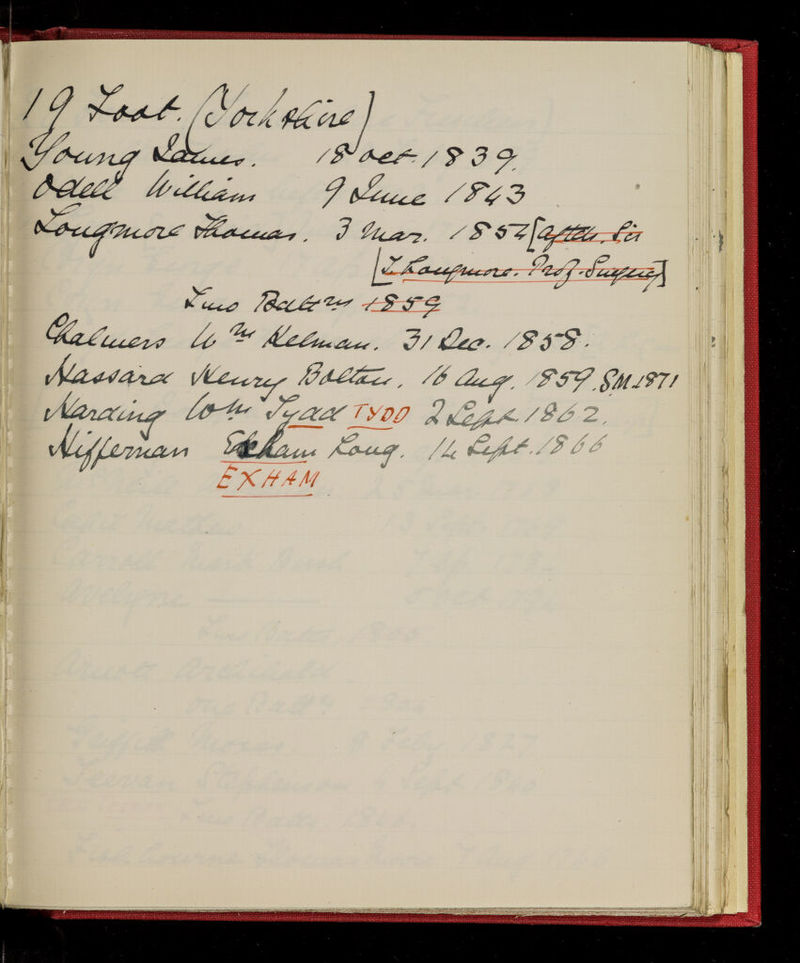 19 Foot. (Yorkshire)
Young James. 18 Oct. 1839.
Odell William 9 June 1843
Longmore Thomas. 3 Mar. 1854 [aftds. Sir
[T. Longmore. Prof. Surgery]
Two Battns 1859
Chalmers Wm Kelman. 31 Dec. 1858.
Hassard Henry Bolton. 16 Aug. 1859. SM.1871
Harding Wm Tydd TYDD 2 Sept. 1862.
Hiffernan Exham Long. 14 Sept. 1866
EXHAM